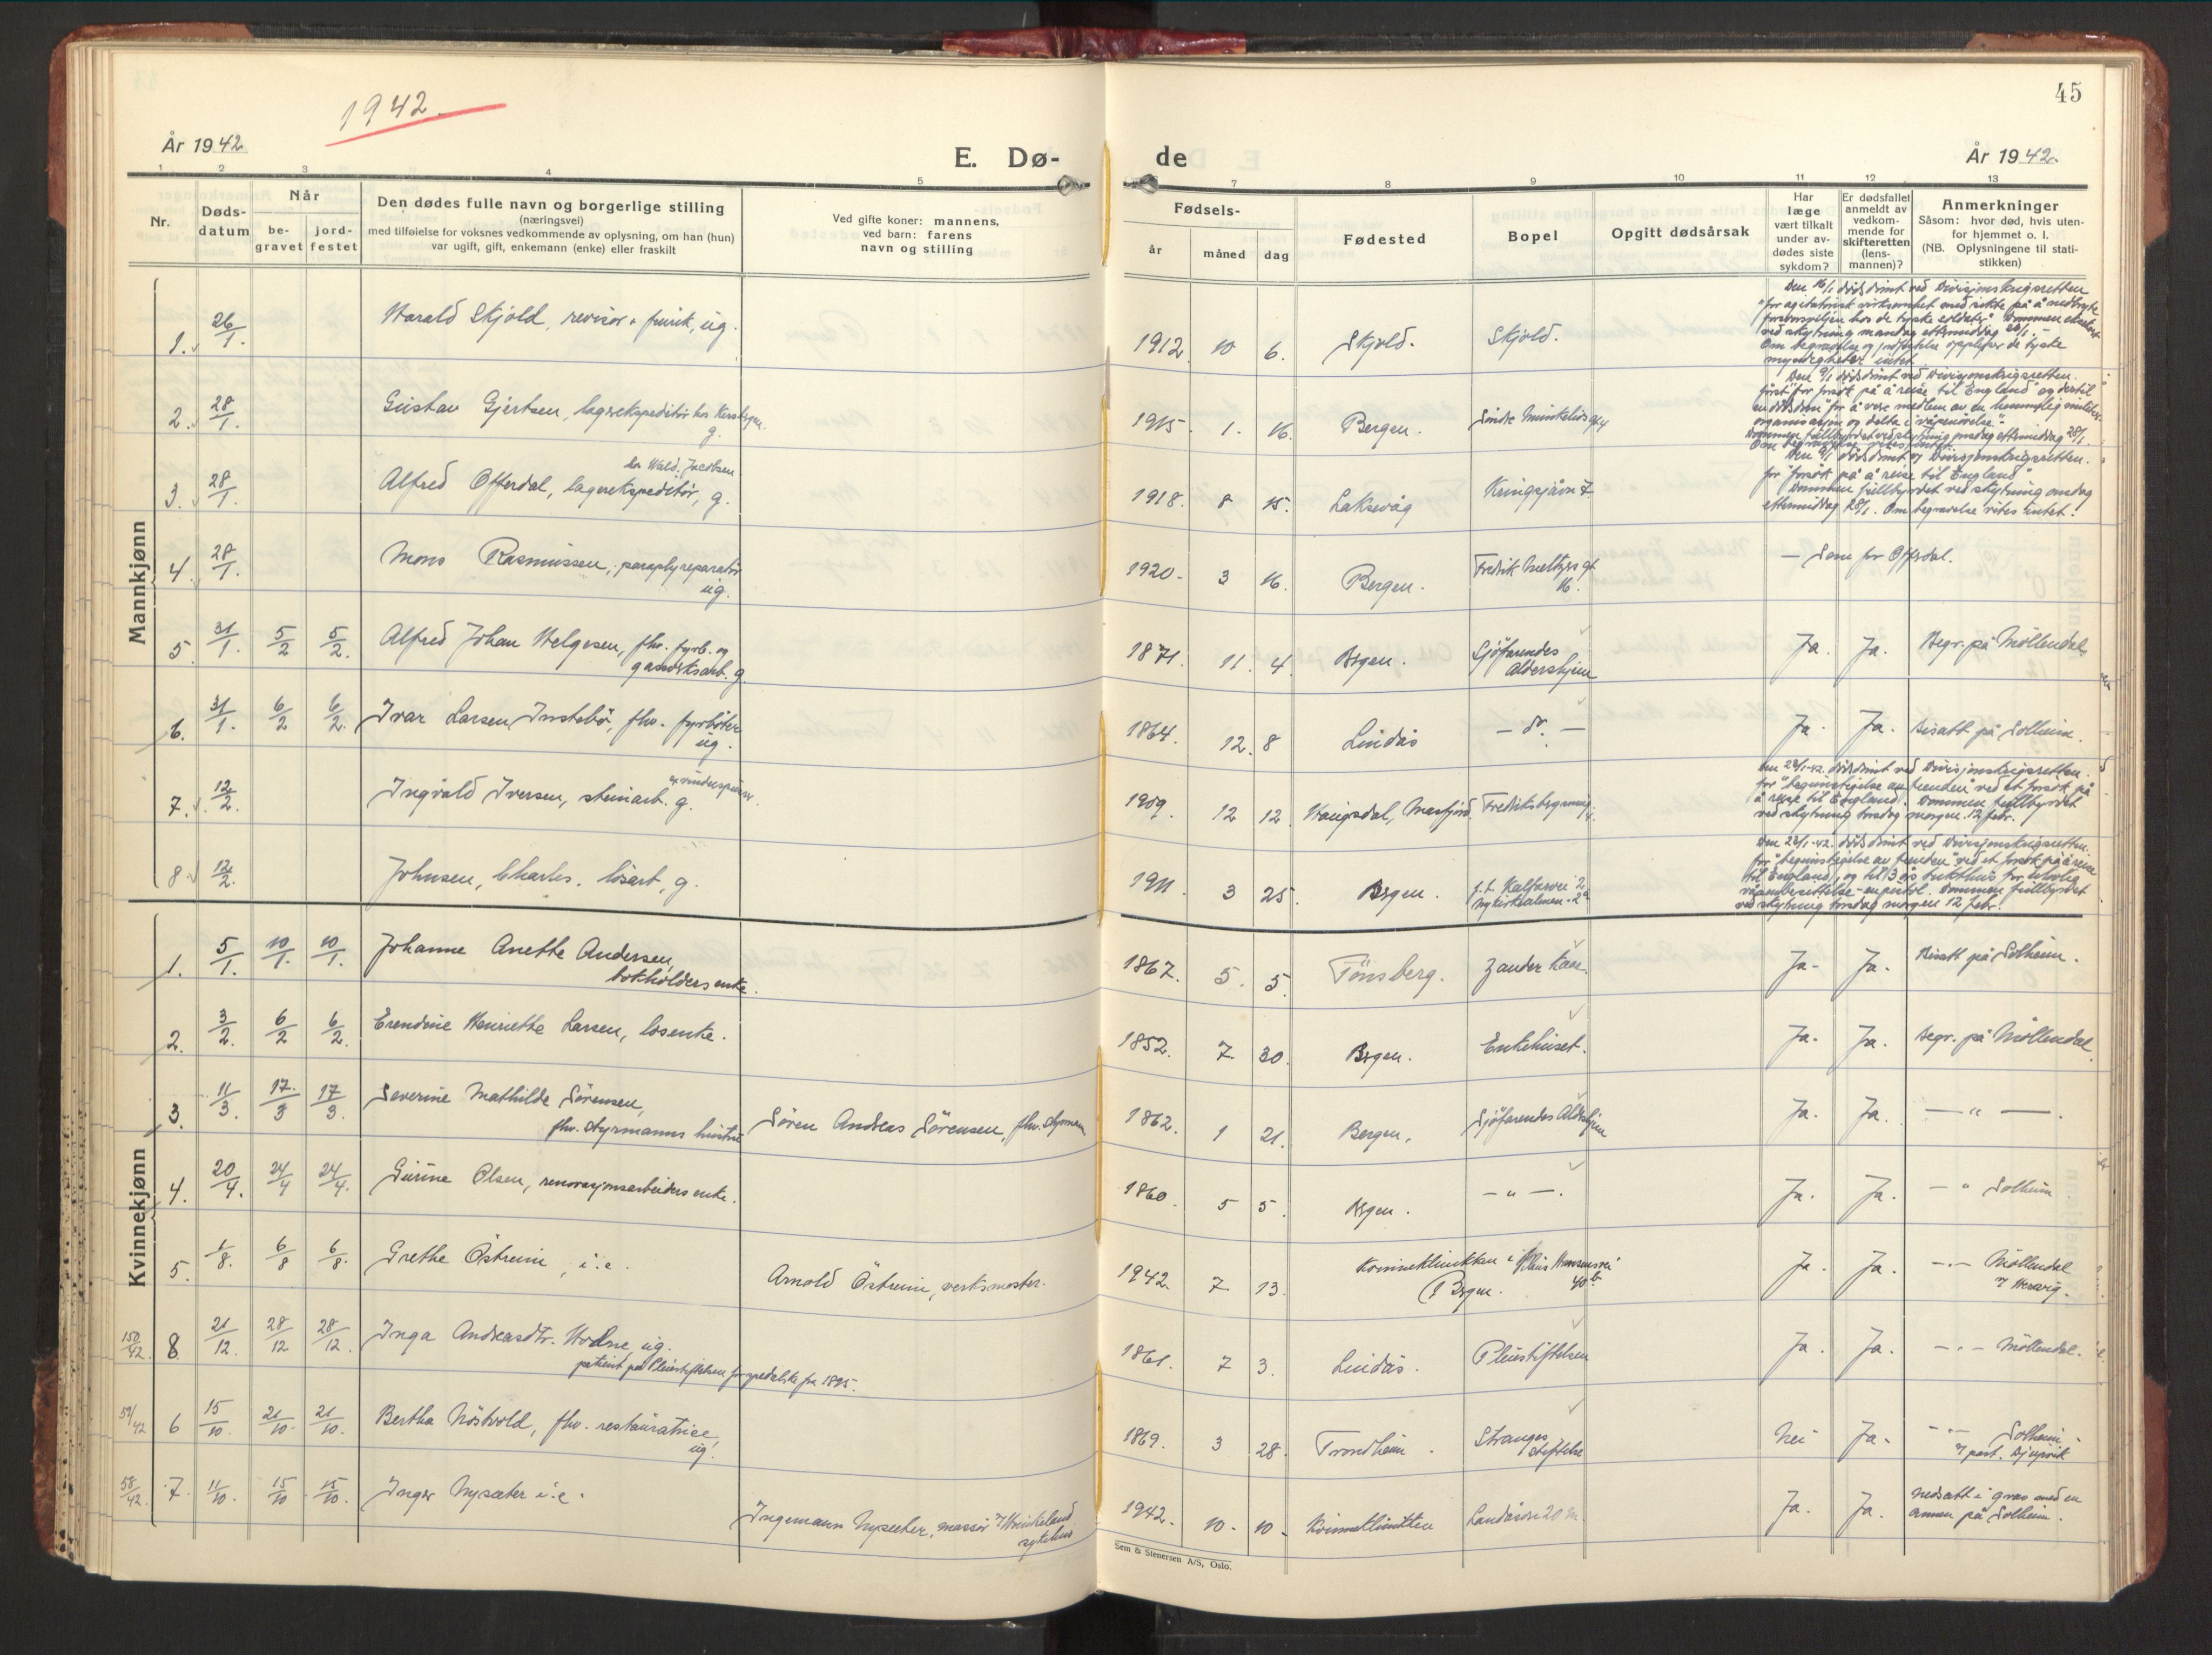 1942.
45
År 1942
E. Dø-
de
År 1942.
1 2 3 4 5 7 8 9 10 11 12 13
Nr.
Døds-
datum
Når
be-
gravet
jord-
festet
Den dødes fulle navn og borgerlige stilling
(næringsvei)
med tilføielse for voksnes vedkommende av oplysning, om han (hun)
var ugift, gift, enkemann (enke) eller fraskilt
Ved gifte koner: mannens,
ved barn: farens
navn og stilling
Fødsels-
år måned dag
Fødested
Bopel
Opgitt dødsårsak
Har
læge
vært tilkalt
under av-
dødes siste
sykdom?
Er dødsfallet
anmeldt av
vedkom-
mende for
skifteretten
(lens-
mannen)?
Anmerkninger
Såsom: hvor død, hvis uten-
for hjemmet o. l.
(NB. Oplysningene til stati-
stikken)
Mannkjønn
1. 26/1. Harald Skjold, revisor, ug. 1912. 10 6. Skjold. Skjold.
Den 16/1 dödsdömt ved Divisjonskrigsretten
"for agitatorisk virksomhet med sikte på å nedbryte
forsvarsviljen hos de tyske soldater" Dommen
ved skytning mandag ettermiddag 26/1.
Om begravelse og jordfestelse opplyser de tyske
myndigheter intet.
2. 28/1. Gustav Gjertsen, lagerekspeditör hos
g. 1915. 1. 16. Bergen. Söndre Munkelivs gt 4
Den 9/1 dödsdömt ved Divisjonskrigsretten.
först "for forsök på å reise til England" og dertil
en dödsdom "for å være medlem av en hemmelig militær
organisasjon og delta i våpenövelse."
Dommen fullbyrdet ved skytning onsdag ettermiddag 28/1.
Om begravelse vites intet.
3. 28/1. Alfred Offerdal, lagerekspeditör, g.
hos Wald. Jacobsen
1918. 8 15. Laksevåg Kringsjåvn 7
Den 9/1 dödsdömt av Divisjonskrigsretten.
for "forsök på å reise til England"
Dommen fullbyrdet ved skytning onsdag
ettermiddag 28/1. Om begravelse vites intet.
4. 28/1. Mons Rasmussen, paraplyreparatör
ug. 1920. 3 16. Bergen. Fredrik Meltzers gt.
16.
— Som for Offerdal.
5. 31/1. 5/2 5/2. Alfred Johan Helgesen, fhv. fyrb. og
gassverksarb. g. 1871. 11. 4. Bergen. Sjöfarendes
Aldershjem Ja. Ja. Begr. på Möllendal
6. 31/1. 6/2 6/2. Ivar Larsen Instebö, fhv. fyrböter
ug. 1864. 12. 8 Lindås — do. — Ja. Ja. Bisatt på Solheim.
7. 12/2. Ingvald Iversen, steinarb. g.
1909. 12 12. Haugsdal, Masfjord. Fredriksbergsmug
4.
Den 28/1-42. dödsdömt ved Divisjonskrigsretten.
for "begunstigelse av fienden" ved et forsök på
å reise til England. Dommen fullbyrdet
ved skytning torsdag morgen 12 febr.
8. 12/2. Johnsen, Charles. lösarb, g. 1911. 3 25. Bergen. f.t. Kalfarvei 2
Nykirkealmen. 2a
Den 28/1-42. dödsdömt ved Divisjonskrigsretten.
for "begunstigelse av fienden" ved et forsök på å reise
til England, og til 3 års tukthus for ulovlig
våpenbesittelse - en pistol. Dommen fullbyrdet
ved skytning torsdag morgen 12 febr.
Kvinnekjønn
1. 5/1. 10/1. 10/1. Johanne Anethe Andersen,
bokholders enke. 1867. 5. 5. Tönsberg. Zander Kaae. Ja. Ja. Bisatt på Solheim.
2. 3/2. 6/2 6/2. Erendine Henriethe Larsen, losenke. 1852. 7 30. Bergen. Enkehuset. Ja. Ja. Begr. på Möllendal.
3. 11/3. 17/3 17/3. Severine Mathilde Sörensen,
fhv. styrmanns hustru Sören Andreas Sörensen, fhv. styrmann 1862. 1 21. Bergen. Sjöfarendes Aldershjem Ja. Ja. — " —.
4. 20/4. 24/4 24/4. Gurine Olsen, renovasjonsarbeiders enke. 1860. 5 5. Bergen. — " —. Ja. Ja. — " Solheim.
5. 1/8. 6/8 6/8. Grethe Östreim, i.e. Arnold Östreim, verksmester. 1942. 7 13. Kvinneklinikken i
Bergen. Hansensvei
40 b Ja. Ja. — " — Möllendal
150/42. 8. 21/12. 28/12 28/12. Inga Andreasdtr. Hodne ug.
patient på Pleiestiftelsen for spedalske fra 1895. 1861. 7 3. Lindås. Pleiestiftelsen Ja. Ja. — " — Möllendal.
59/42 6 15/10. 21/10. 21/10. Bertha Nöstvold, fhv. restauratrice,
ug. 1869. 3 28. Trondheim. Stranges
stiftelse Nei Ja. — " — Solheim.
58/42. 7. 11/10. 15/10 15/10. Inger Nysæter i.e. Ingemann Nysæter, massör v/Haukeland
sykehus 1942. 10. 10. Kvinneklinikken Landåsvei 20 Ja. Ja. Nedsatt i grav med en
annen på Solheim.
Sem & Stenersen A/S, Oslo.